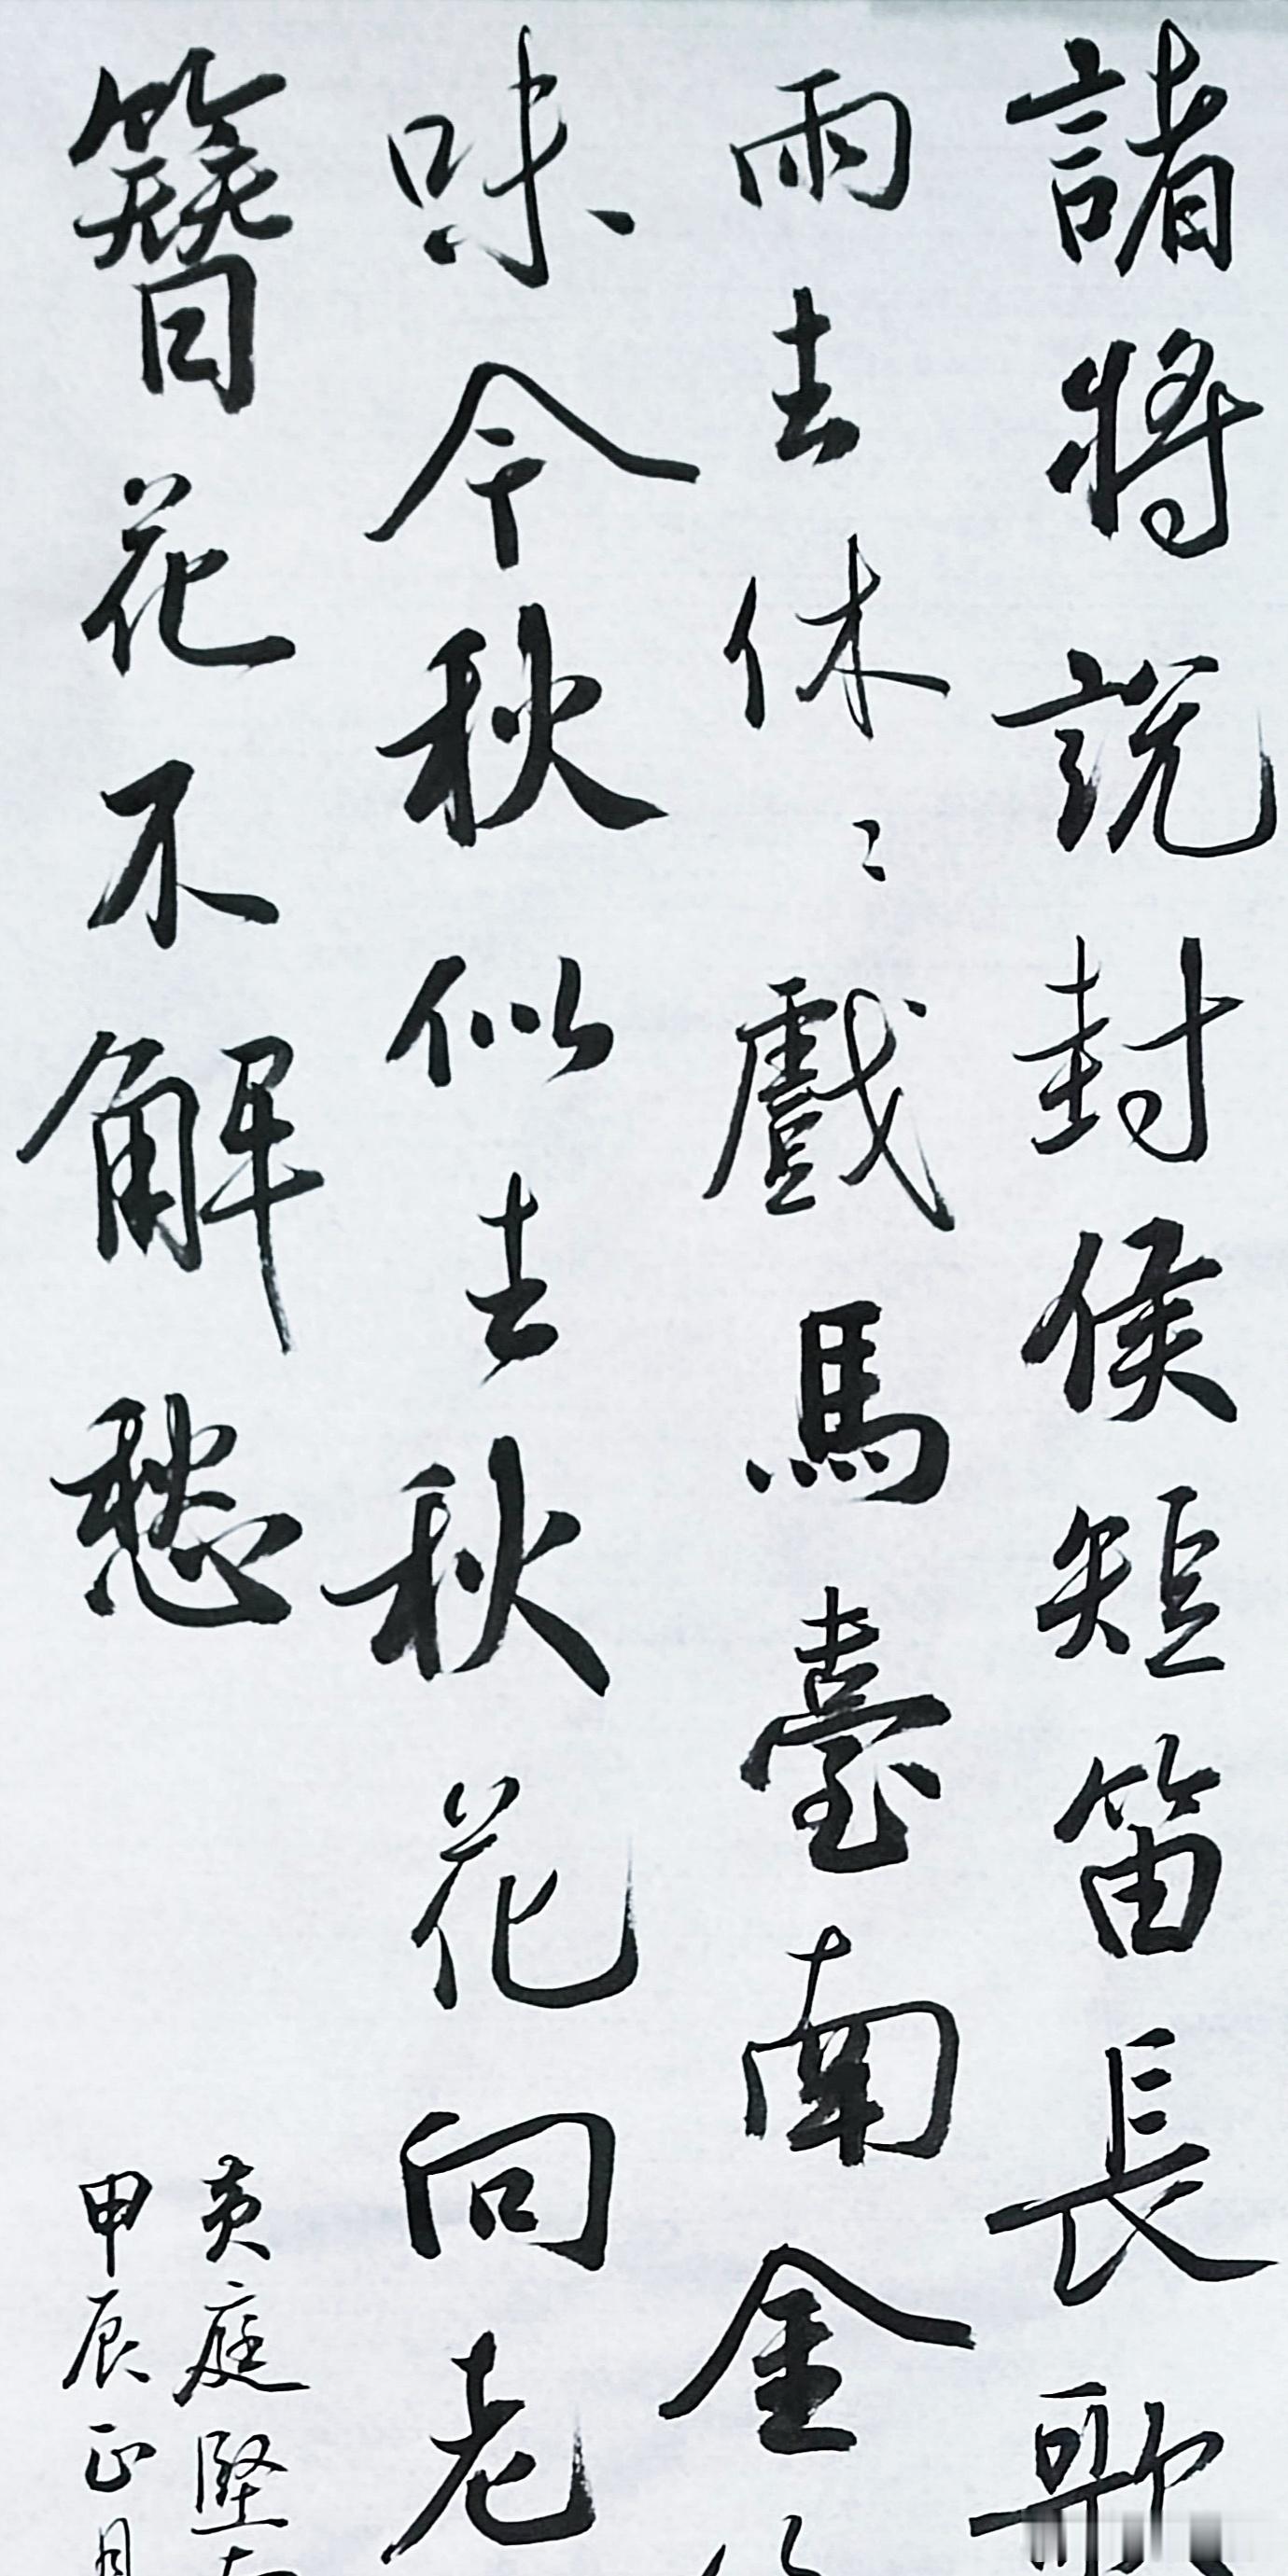 諸將說封侯短笛長歌
雨去休〻戲馬臺南金
味今秋似去秋花向老
簪花不解愁
黄庭堅
甲辰正月